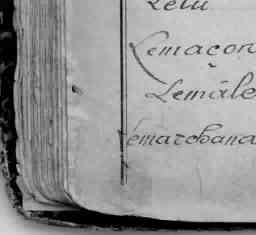 Lelu
Lemaçon
Lemâle
Lemarchana